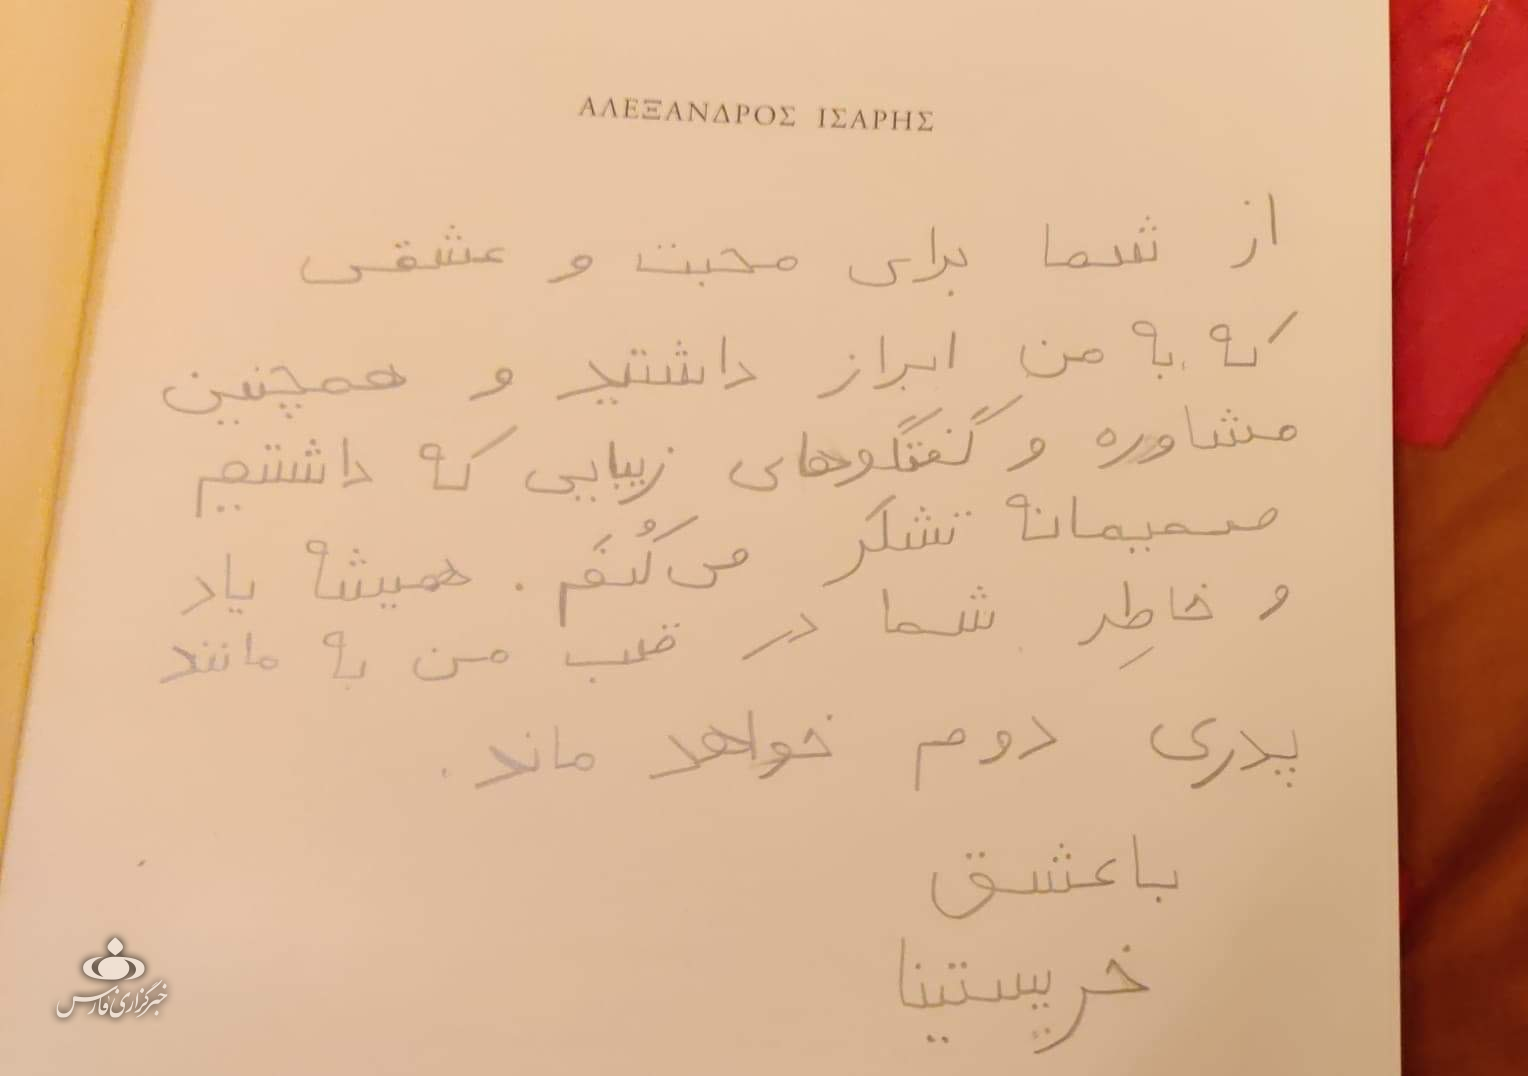 ΑΛΕΞΑΝΔΡΟΣ ΙΣΑΡΗΣ
از شما برای محبت و عشقی
که به من ابراز داشتید و همچنین
مشاوره و گفتگوهای زیبایی که داشتیم
صمیمانه تشکر می‌کُنَم. همیشه یاد
و خاطِر شما در قلب من به مانند
پدری دوم خواهد ماند.
با عشق
خریستینا
خبرگزاری فارس